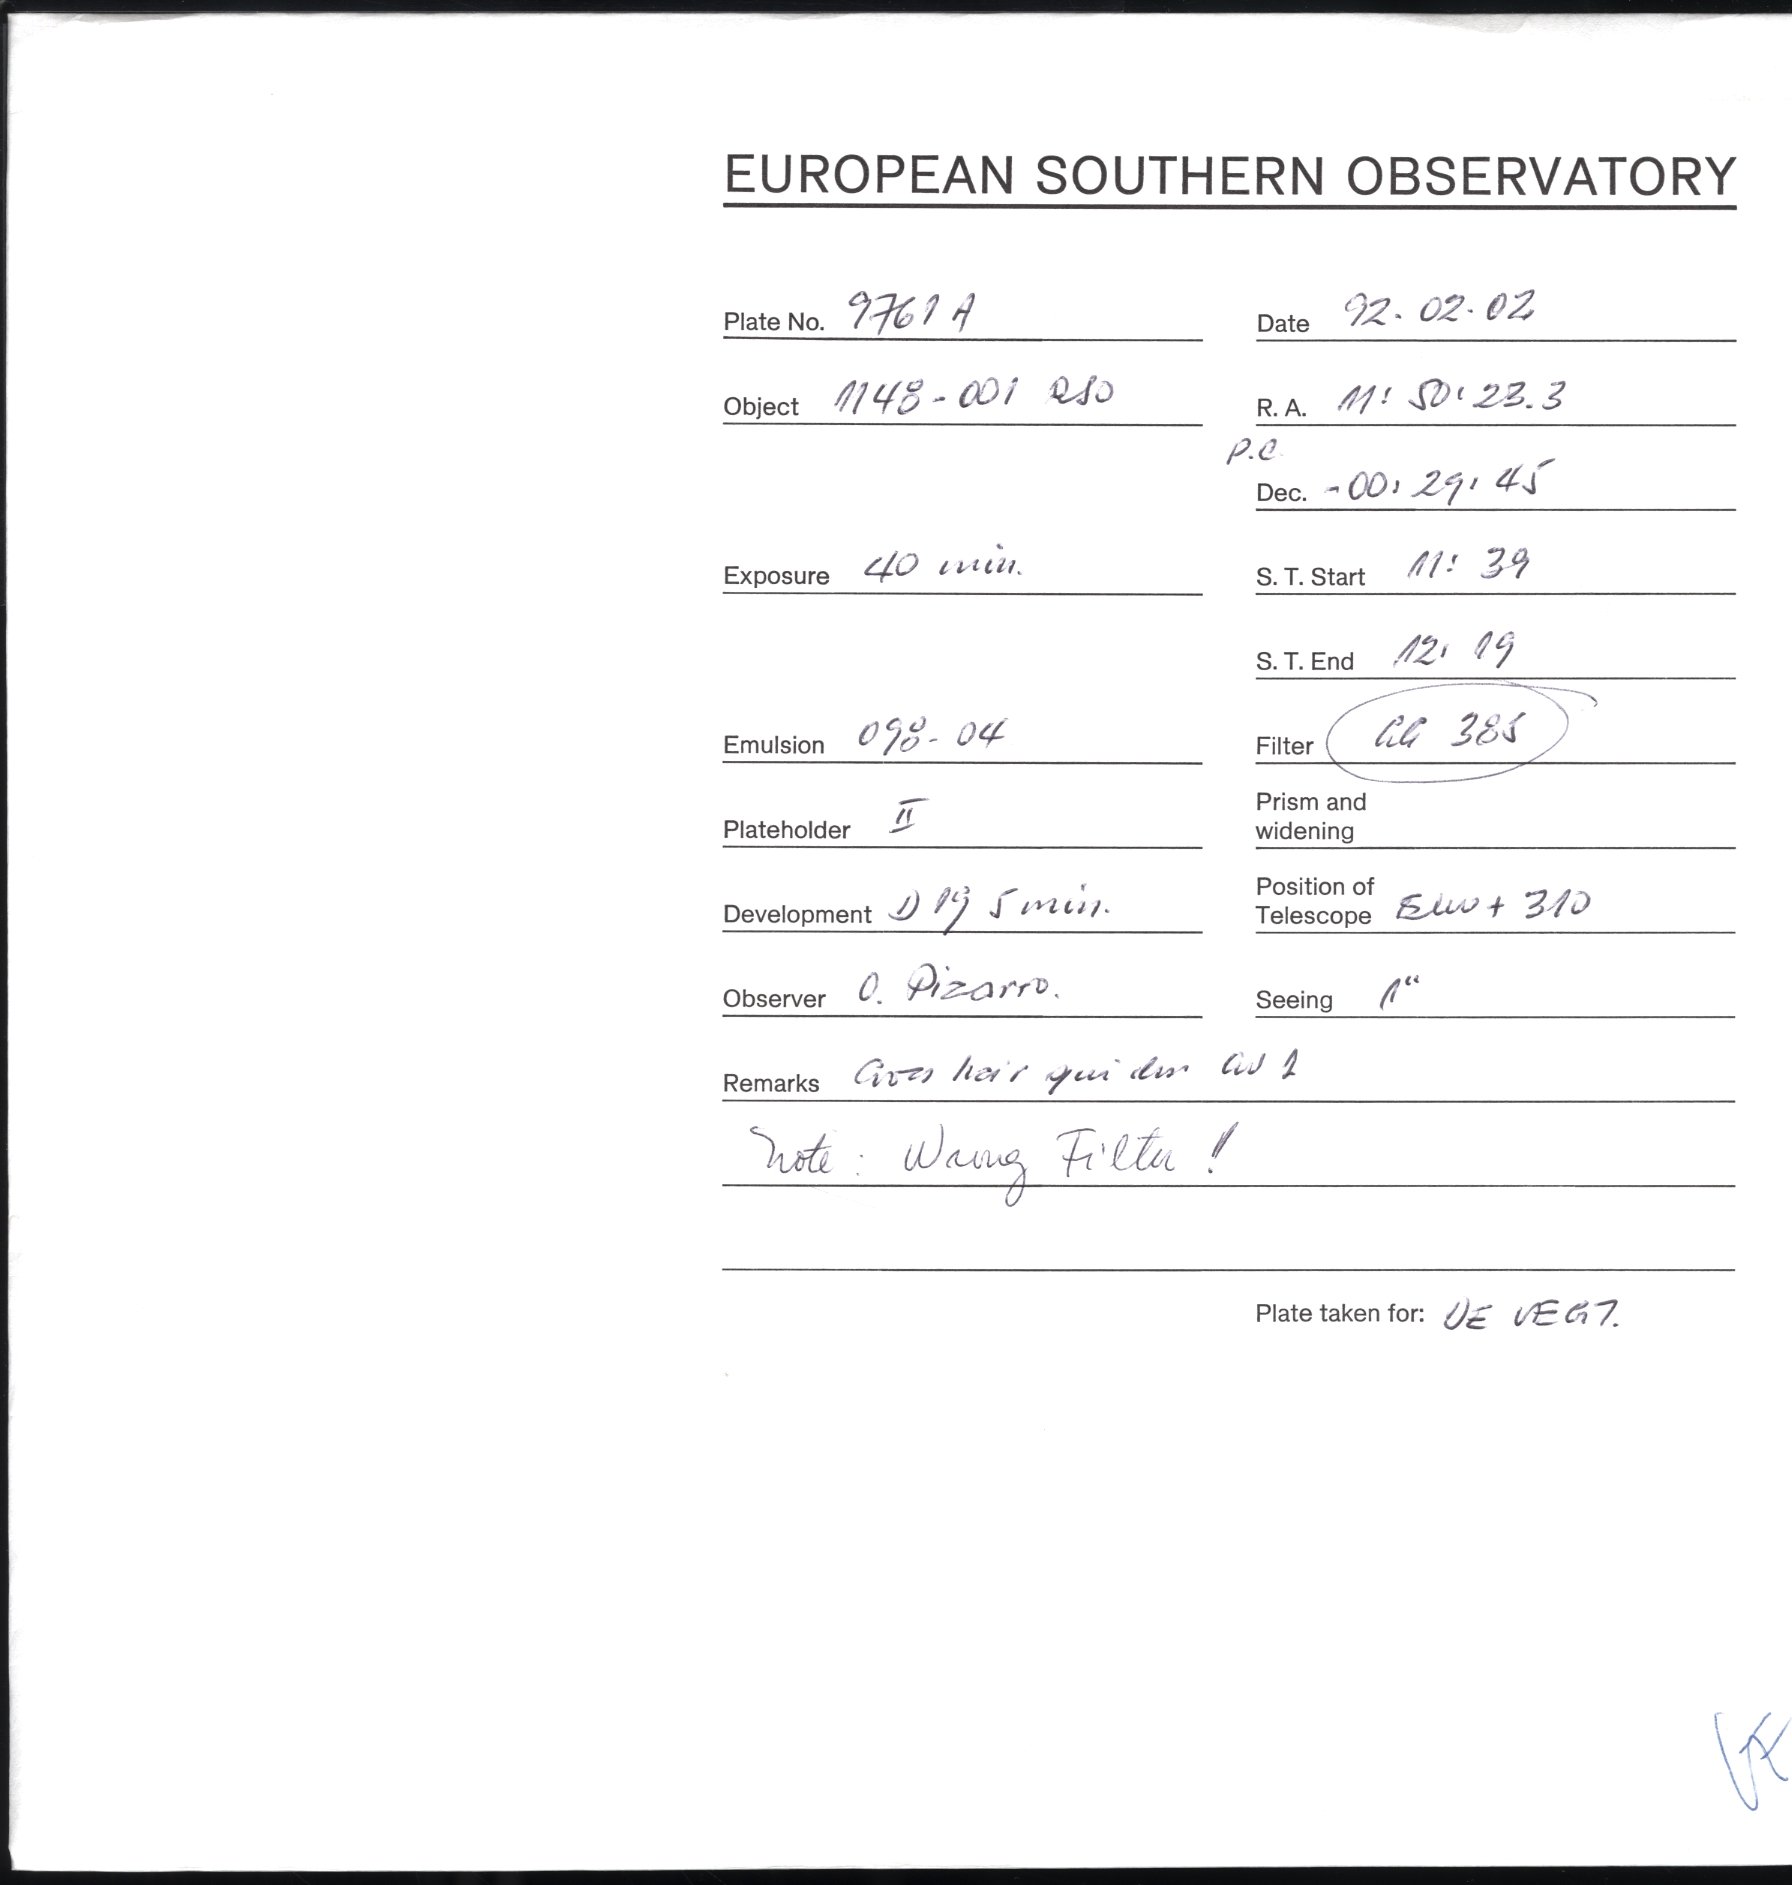 EUROPEAN SOUTHERN OBSERVATORY
Plate No. 9761 A Date 92.02.02
Object 1148-001 QSO R. A. 11:50:23.3
P.C.
Dec. -00:29:45
Exposure 40 min. S. T. Start 11:39
S. T. End 12:19
Emulsion 098-04 Filter GG 385
Plateholder II Prism and
widening
Development D19 5 min. Position of
Telescope + 310
Observer O. Pizarro. Seeing 1"
Remarks hair
Note: Wrong Filter!
Plate taken for: DE VEGT.